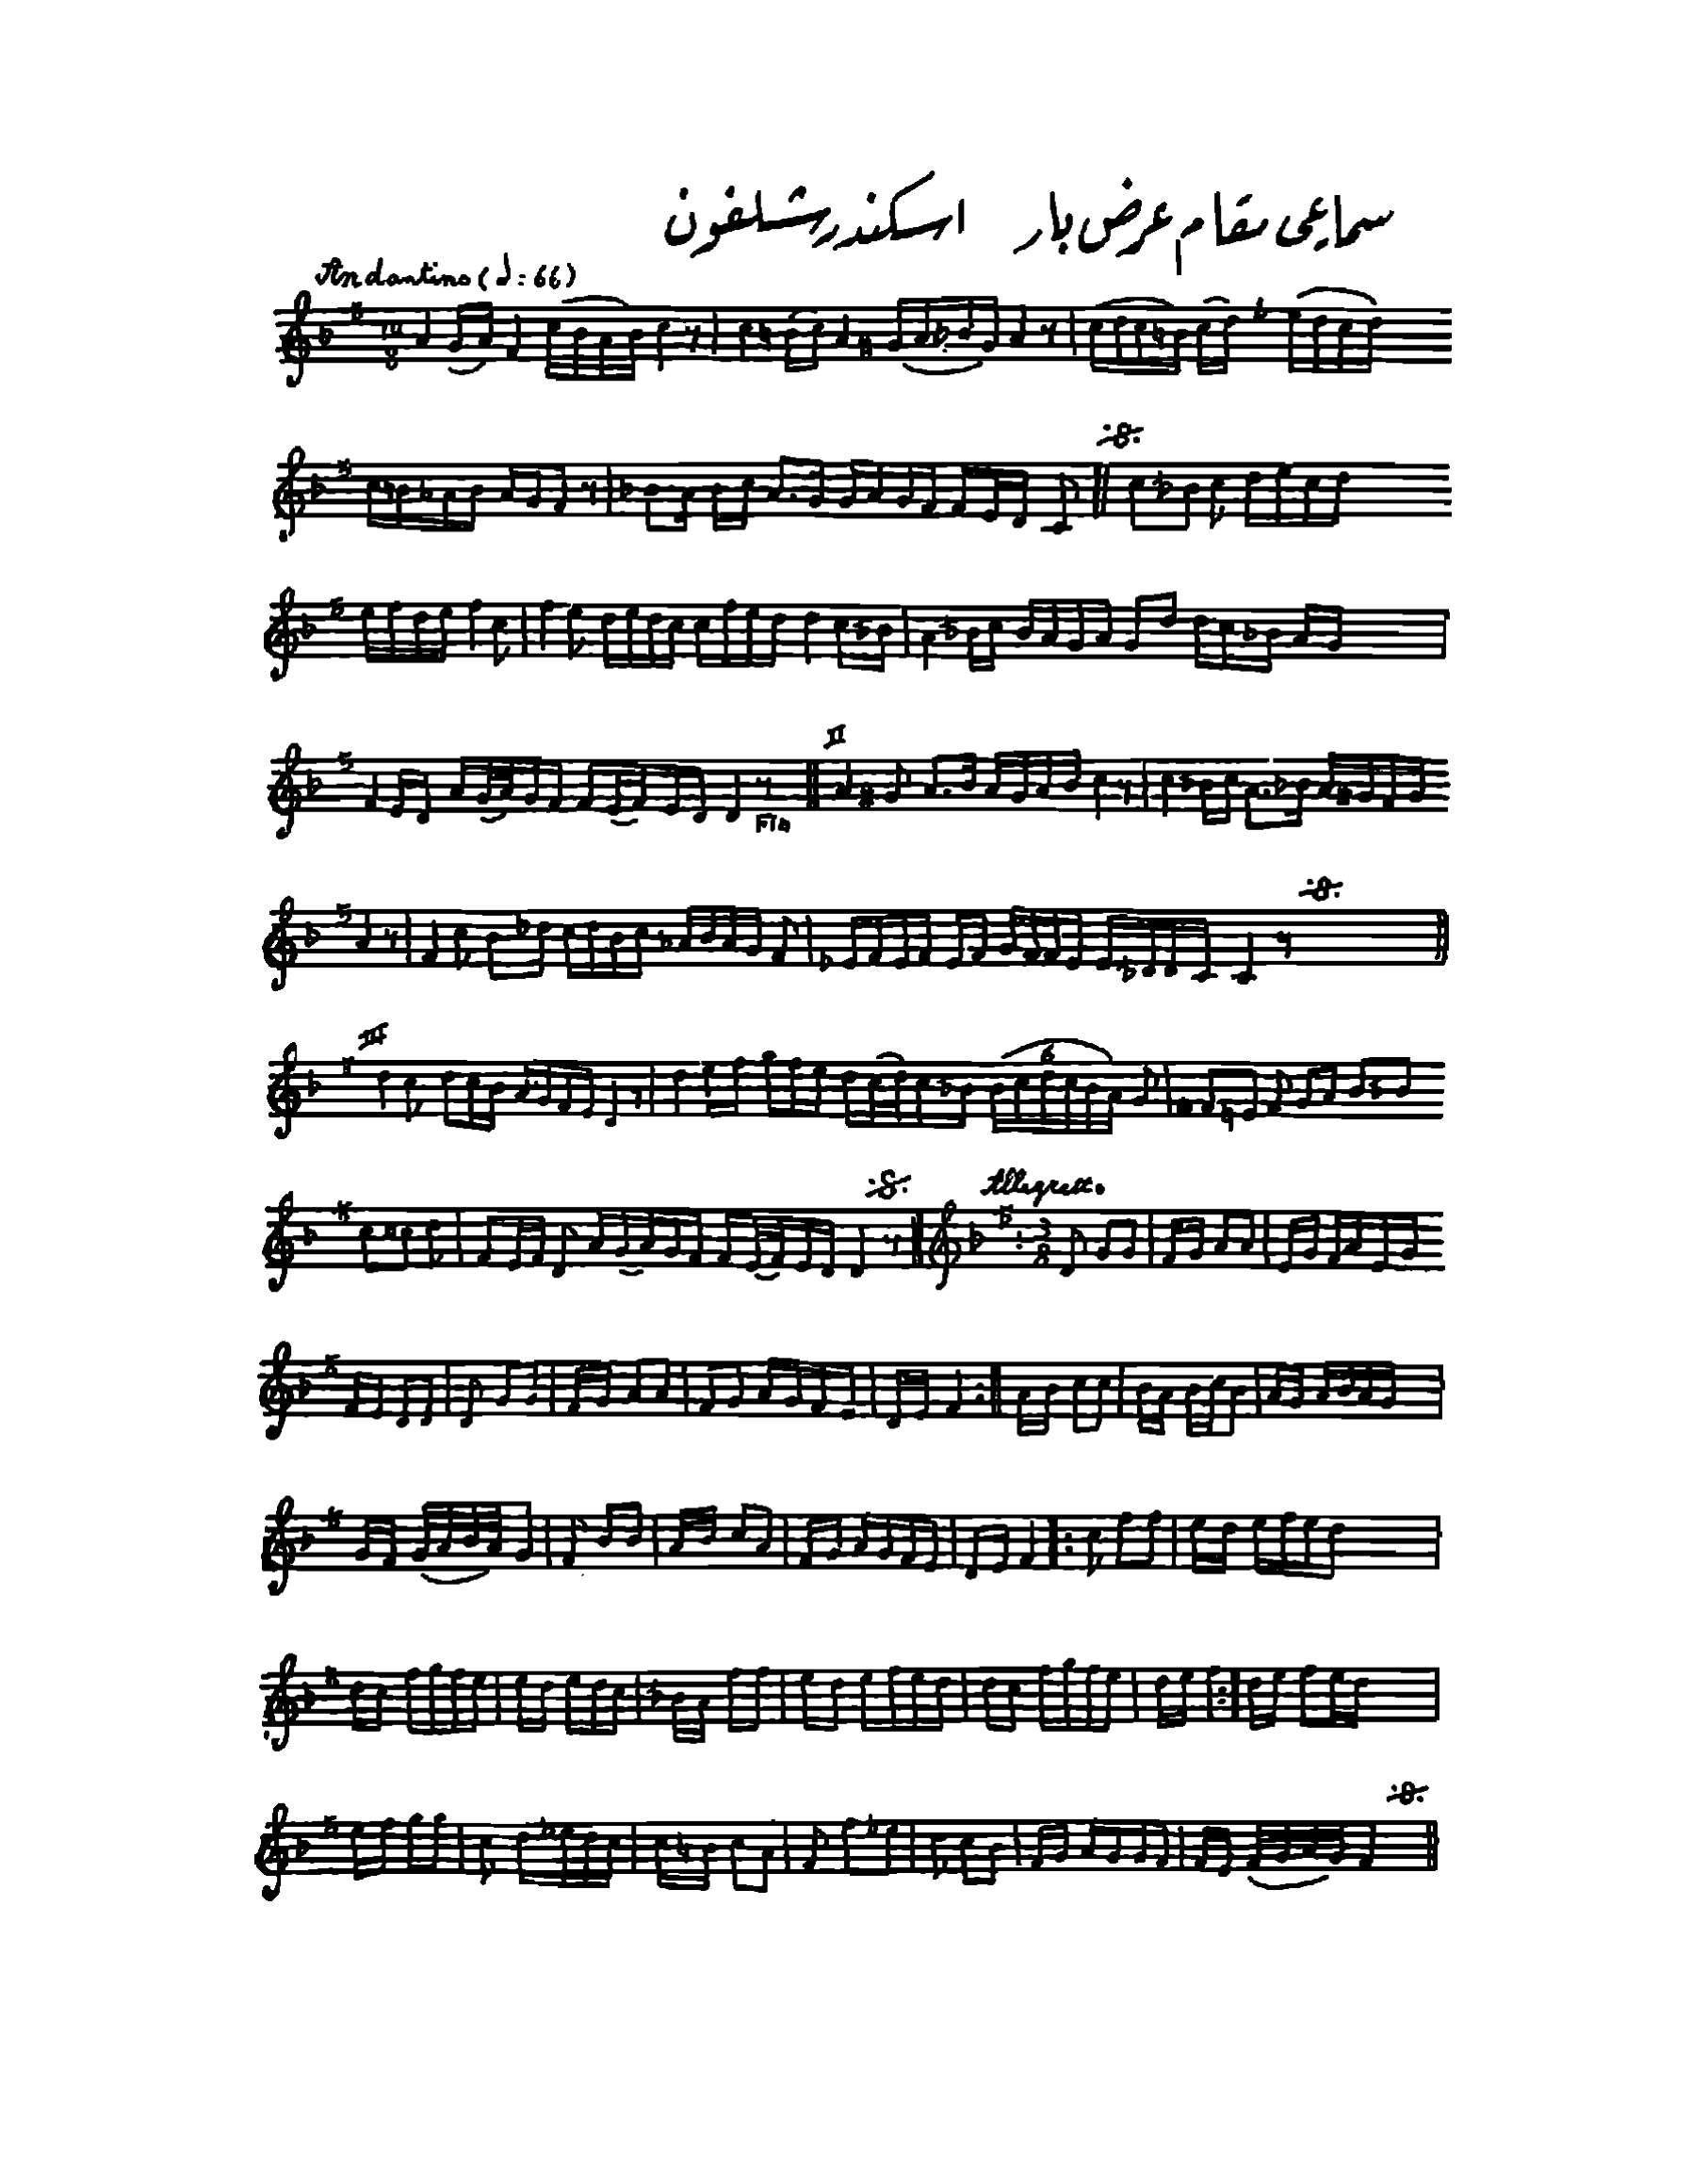 سماعي مقام عرض بار اسكندر شلفون
Andantino (♩ = 66)
10
8
Fin
II
III
6
Allegrett.
3
8